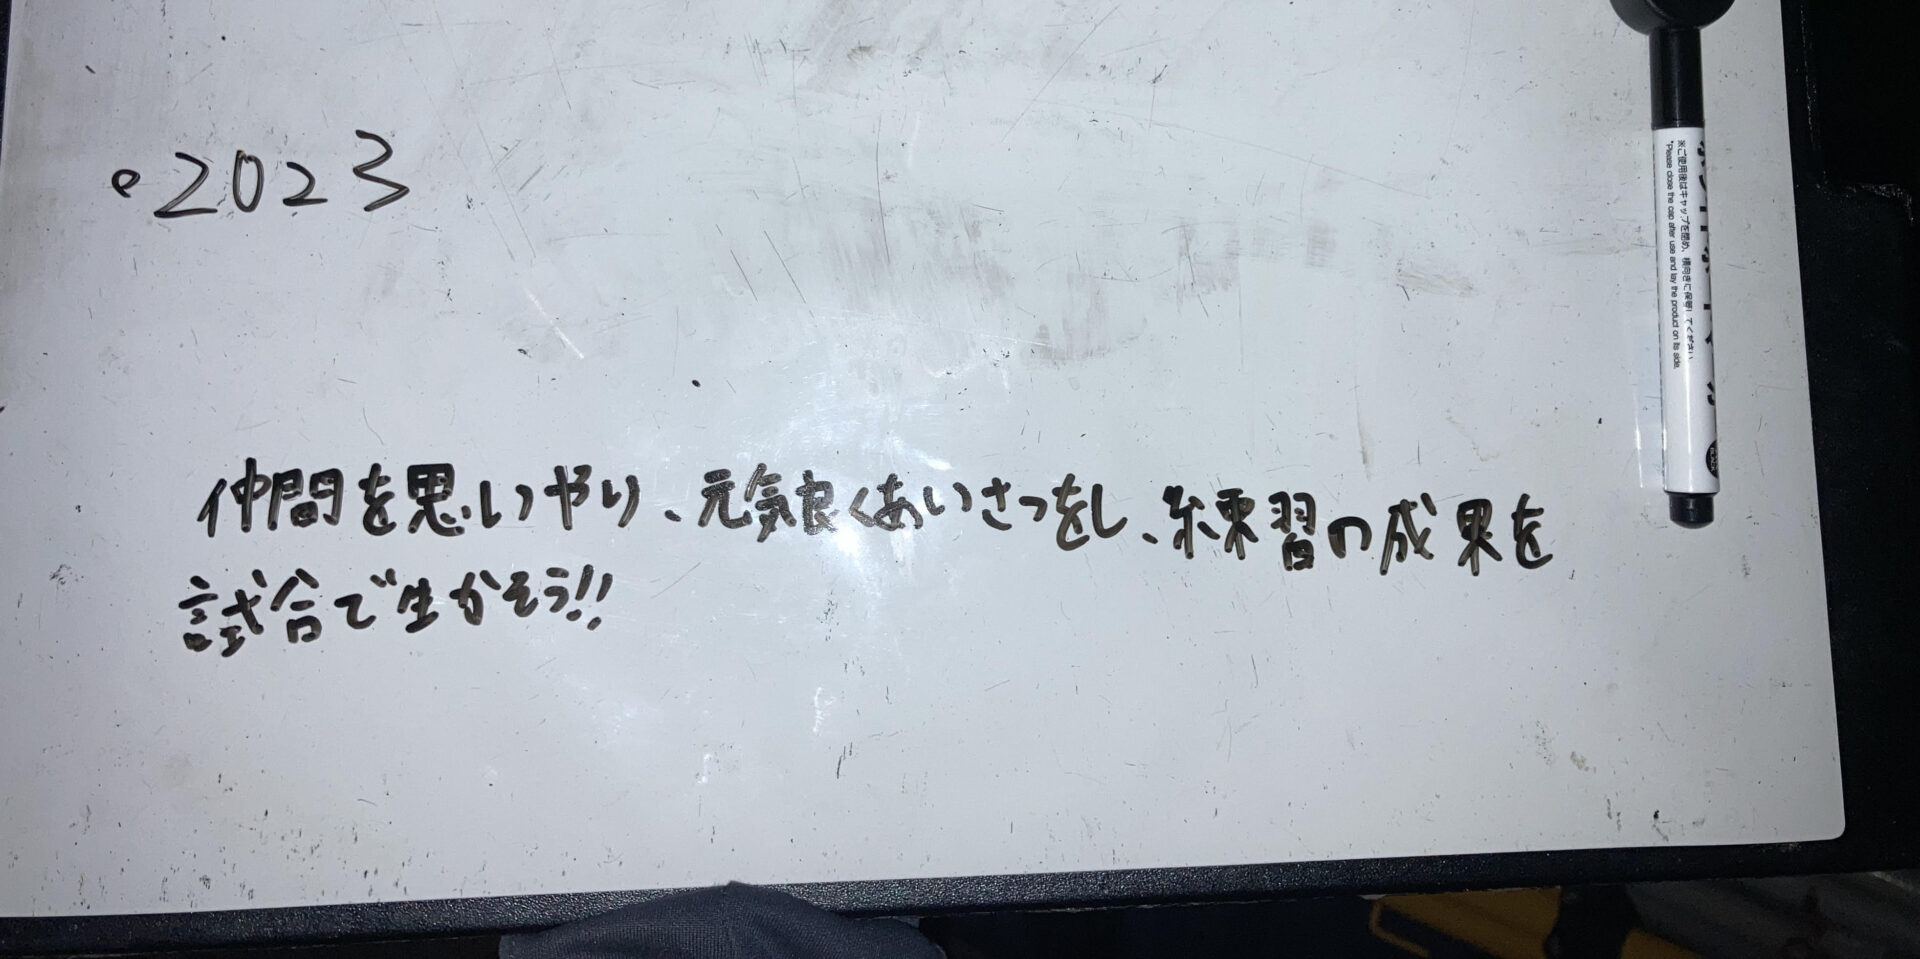 ・2023
仲間を思いやり、元気良くあいさつをし、練習の成果を
試合で生かそう!!
※ご使用後はキャップを閉め、横向きに保管してください
*Please close the cap after use and lay the product on its side.
BLACK